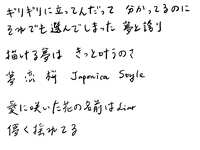 ギリギリに立ってんだって 分かってるのに
それでも選んでしまった 夢と誇り
描ける夢は きっと叶うのさ
夢 流 桜 Japonica Style
愛に咲いた花の名前はLiar
儚く揺れてる